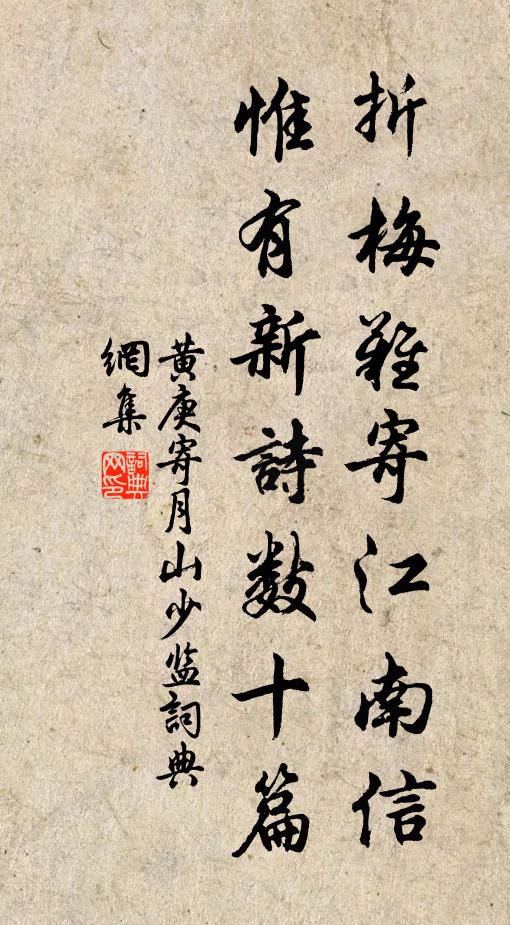 折梅難寄江南信
惟有新詩数十篇
黄庚寄月山少监詞典
網集
詞典
网印